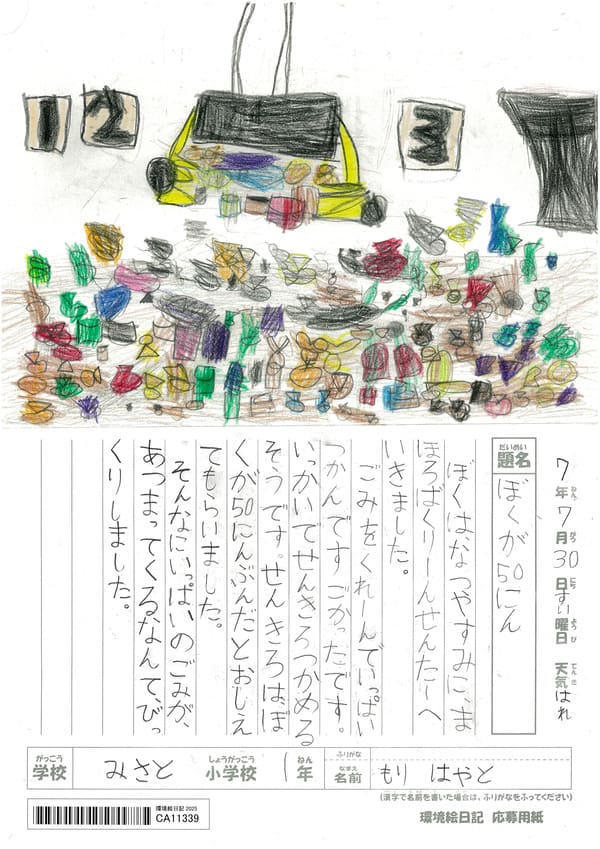 1 2 3
7年ねん7月がつ30日にちすい曜日ようび 天気てんきはれ
題名だいめい ぼくが50にん
ぼくは、なつやすみに、ま
ほろばくりーんせんたーへ
いきました。
ごみをくれーんでいっぱい
つかんですごかったです。
いっかいでせんきろつかめる
そうです。せんきろは、ぼ
くが50にんぶんだとおしえ
てもらいました。
そんなにいっぱいのごみが、
あつまってくるなんて、びっ
くりしました。
がっこう しょうがっこう ねん ふりがな
学校 みさと 小学校 1年 なまえ 名前 もり はやと
(漢字で名前を書いた場合は、ふりがなをふってください)
環境絵日記 2025
CA11339
環境絵日記 応募用紙